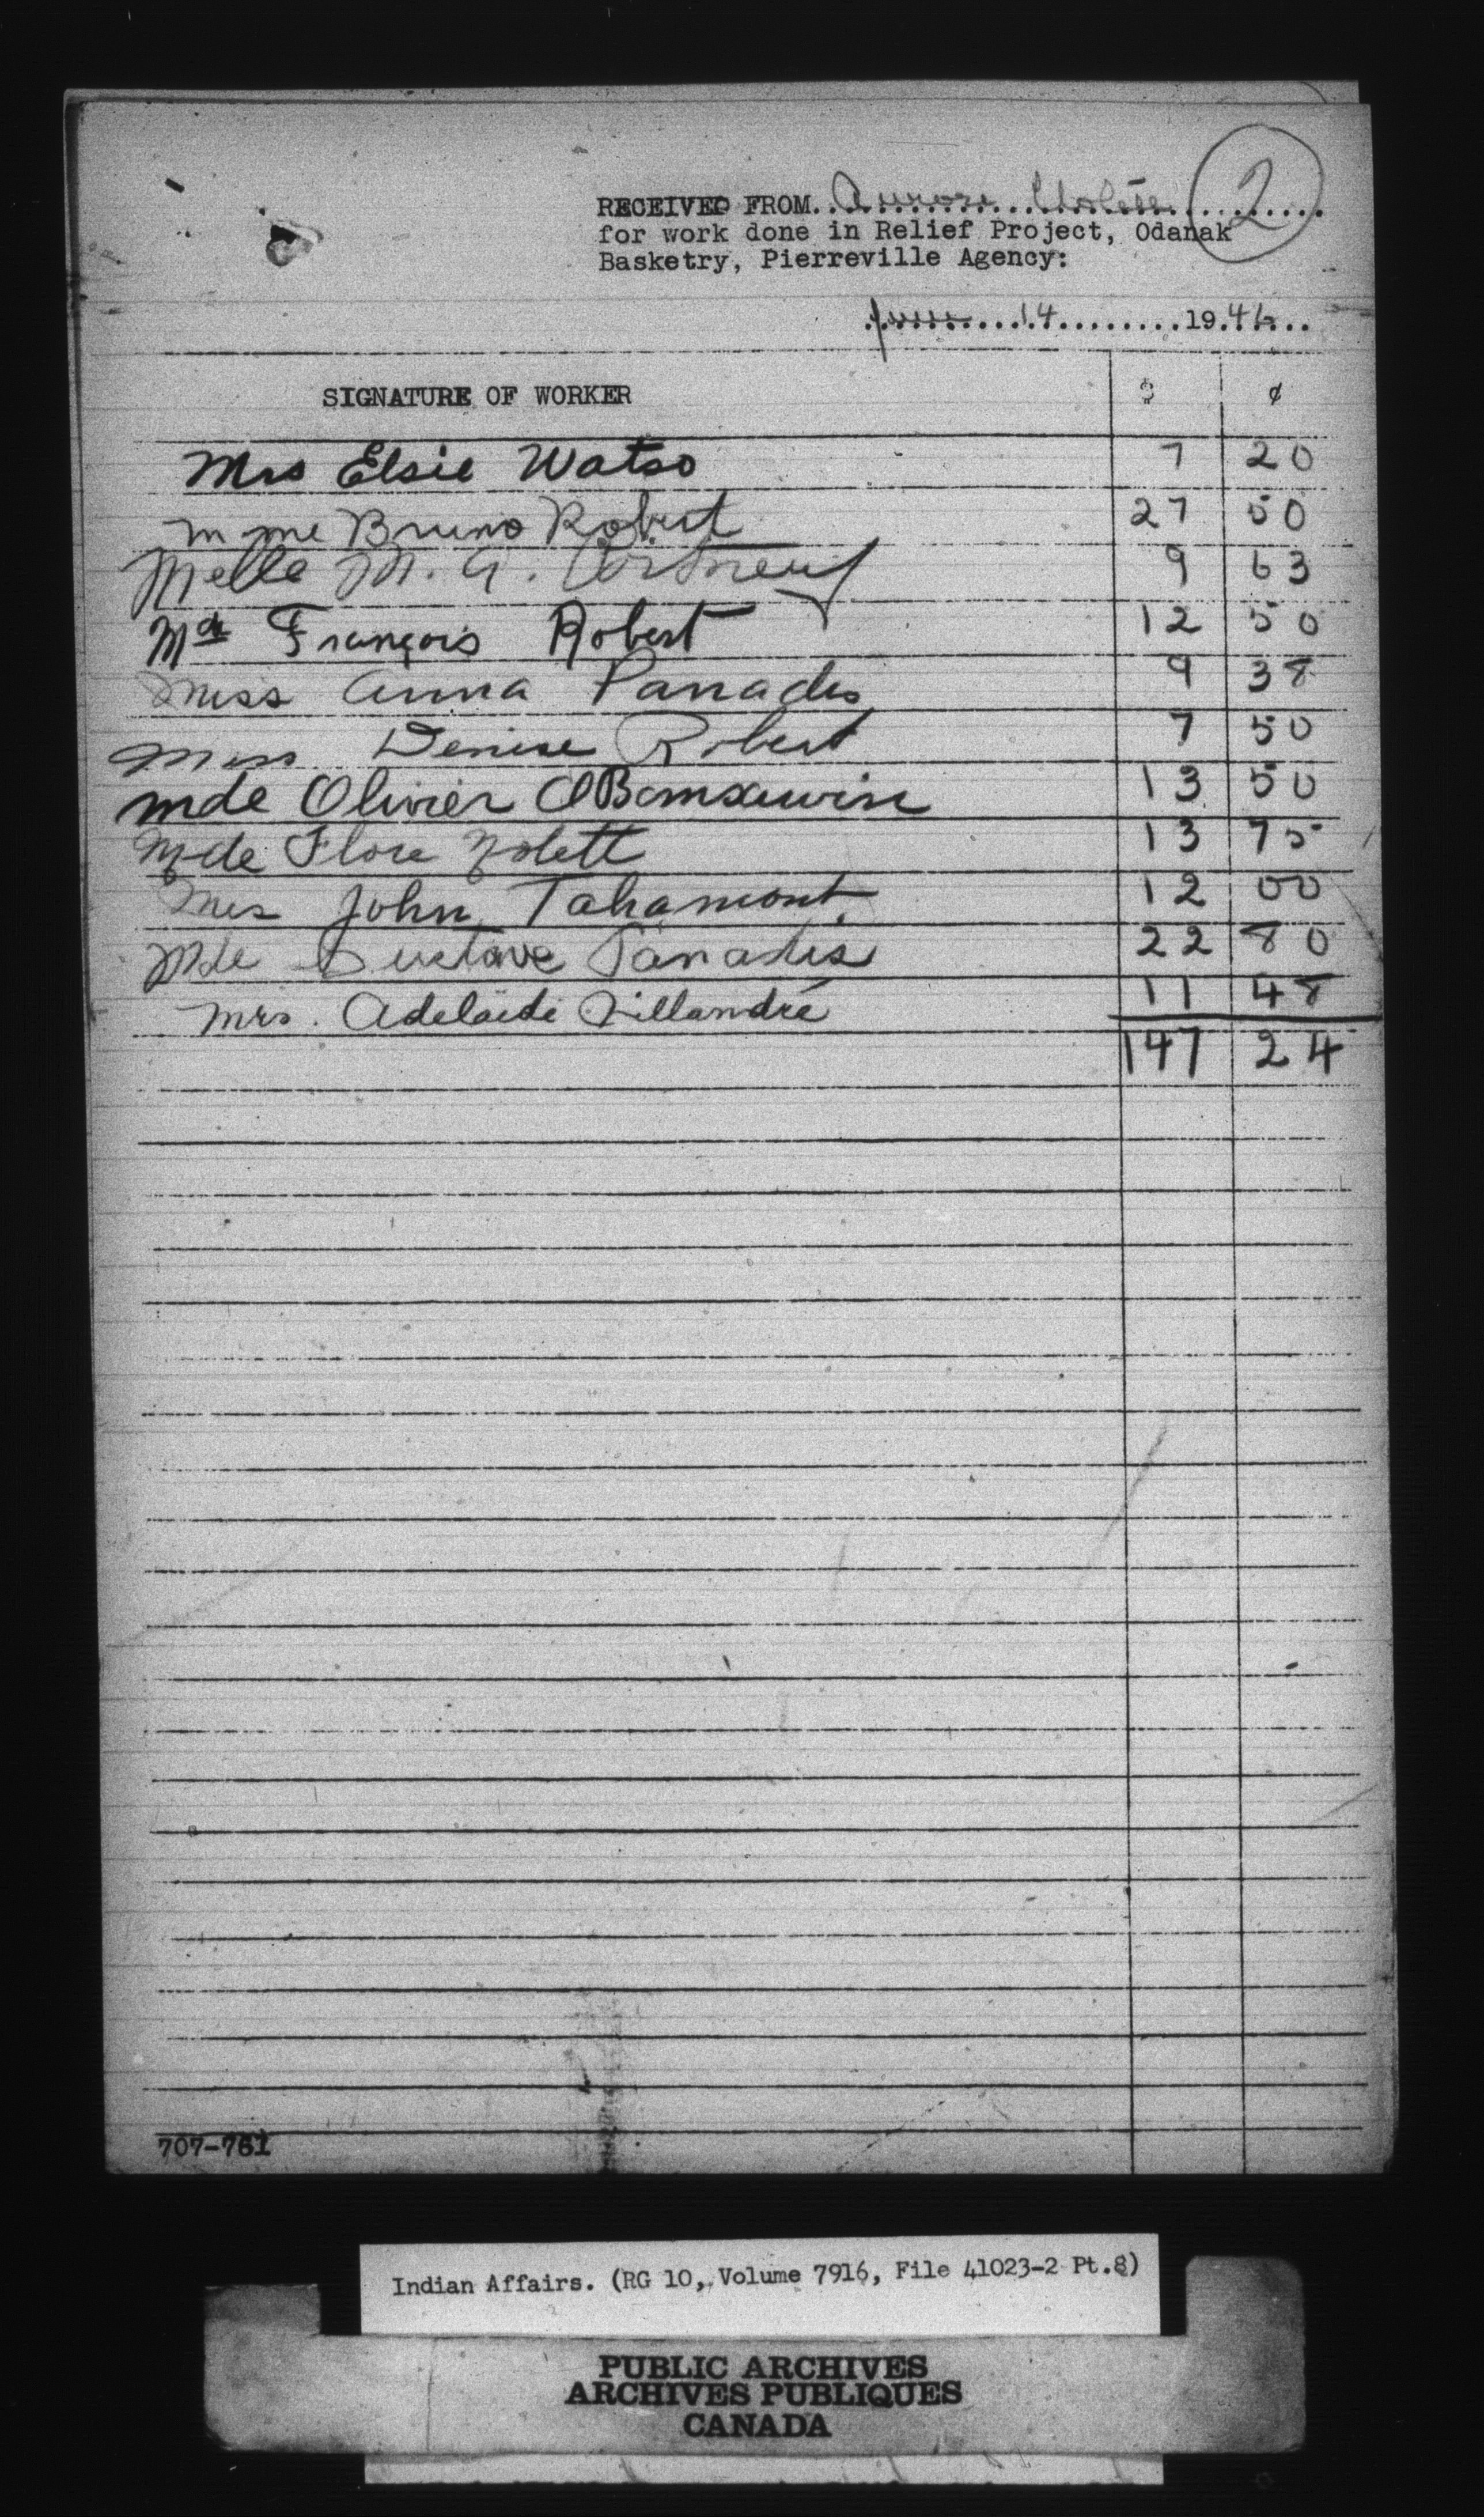 2
RECEIVED FROM Aurore
for work done in Relief Project, Odanak
Basketry, Pierreville Agency:
June 14 1946
SIGNATURE OF WORKER $ ¢
Mrs Elsie Watso 7 20
Mme Bruno Robert 27 50
Melle M. A. Portneuf 9 63
Mde François Robert 12 50
Miss Anna Panadis 9 38
Miss Denise Robert 7 50
Mde Olivier OBomsawin 13 50
Mde Flore Nolett 13 75
Mrs John Tahamont. 12 00
Mde Gustave Panadis 22 80
Mrs. Adelaïde Villandré 11 48
147 24
707-761
Indian Affairs. (RG 10, Volume 7916, File 41023-2 Pt.8)
PUBLIC ARCHIVES
ARCHIVES PUBLIQUES
CANADA